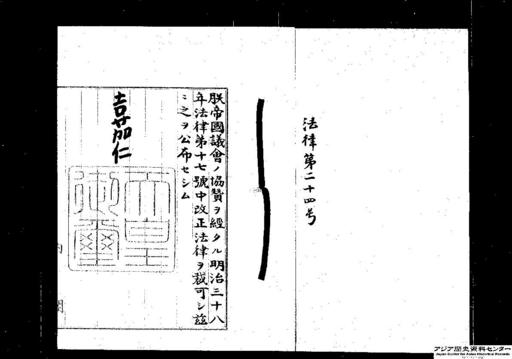 法律第二十四号
朕帝國議會ノ協賛ヲ經タル明治三十八
年法律第十七號中改正法律ヲ裁可シ茲
ニ之ヲ公布セシム
嘉仁
天皇
御璽
内閣
アジア歴史資料センター
Japan Center for Asian Historical Records